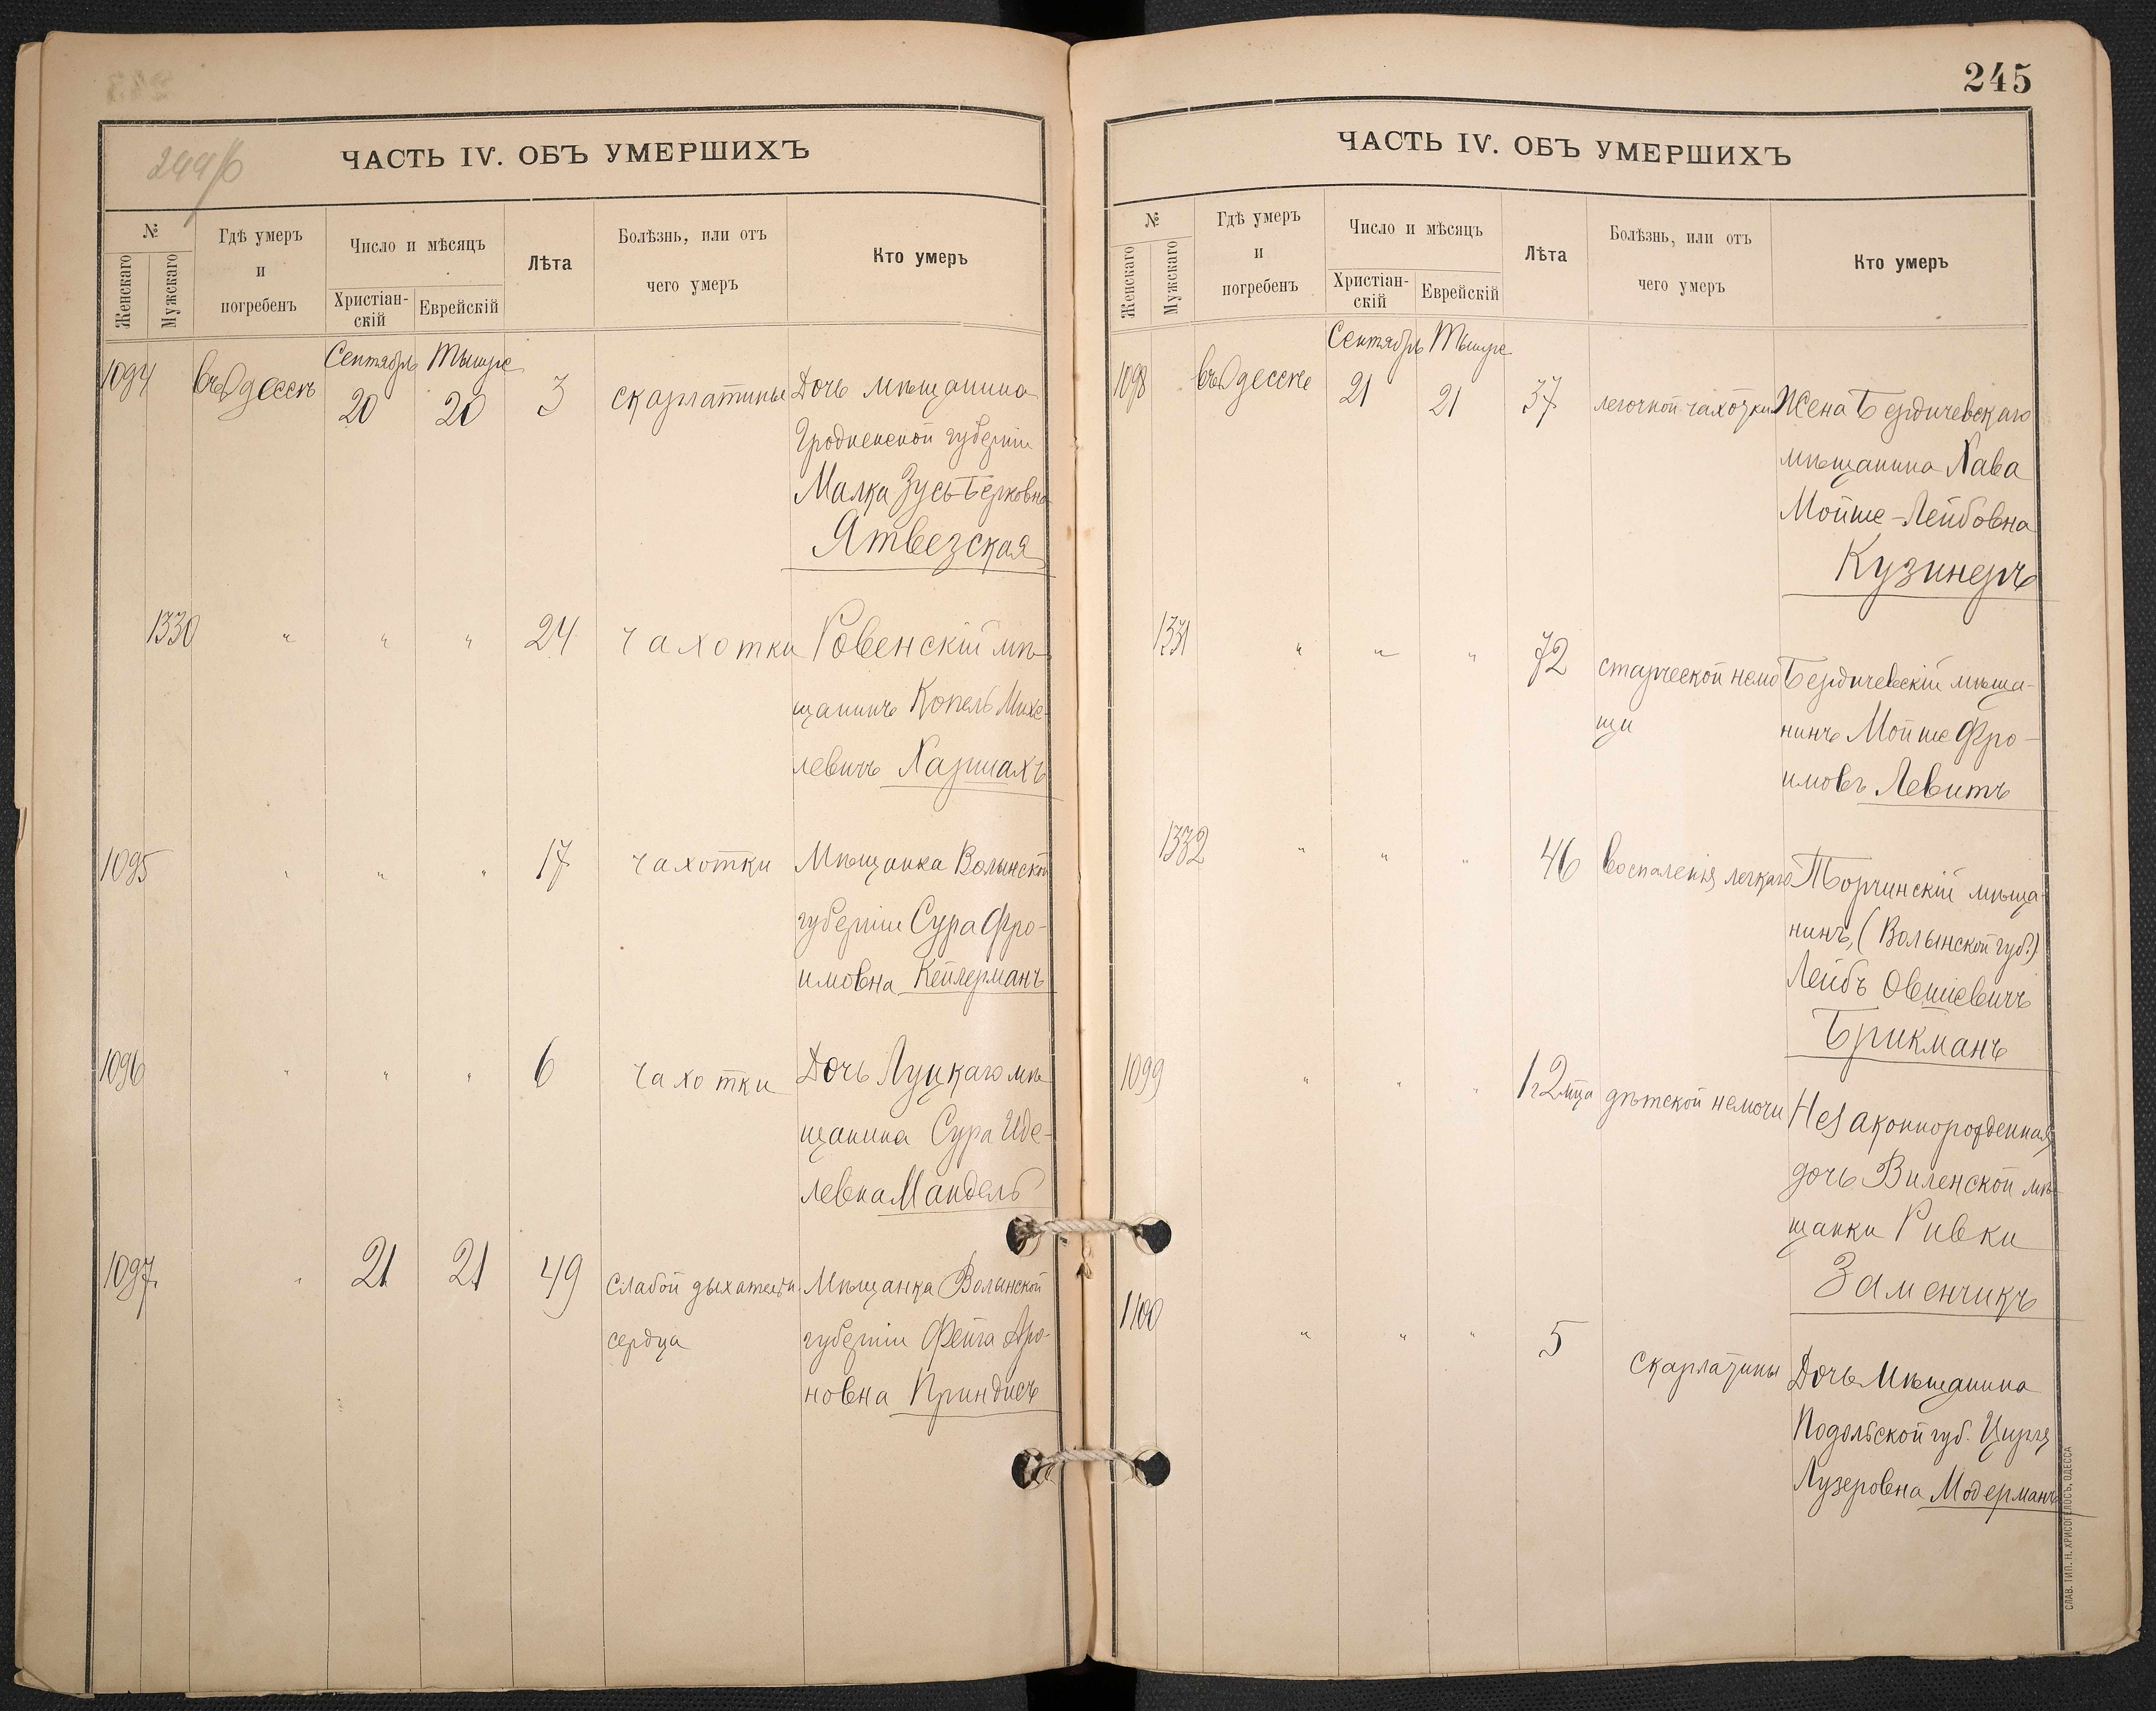 244/б
ЧАСТЬ IV. ОБЪ УМЕРШИХЪ
№
Женскаго
Мужскаго
Гдѣ умеръ
и
погребенъ
Число и мѣсяцъ
Христіан-
скій
Еврейскій
Лѣта
Болѣзнь, или отъ
чего умеръ
Кто умеръ
Сентябрь Тышре
1094 въ Одессѣ 20 20 3 скарлатины Дочь мѣщанина
Гродненской губерніи
Малка Зусь-Берковна
Ятвезская
1330 " " " 24 чахотки Ровенскій мѣ-
щанинъ Копель Михе-
левичъ Харшахъ
1095 " " " 17 чахотки Мѣщанка Волынской
губерніи Сура Фро-
имовна Кейлерманъ
1096 " " " 6 чахотки Дочь Луцкаго мѣ-
щанина Сура Иде-
левна Мандель
1097 " 21 21 49 Слабой сердца Мѣщанка Волынской
губерніи Фейга Аро-
новна Приндисъ
245
ЧАСТЬ IV. ОБЪ УМЕРШИХЪ
№
Женскаго
Мужскаго
Гдѣ умеръ
и
погребенъ
Число и мѣсяцъ
Христіан-
скій
Еврейскій
Лѣта
Болѣзнь, или отъ
чего умеръ
Кто умеръ
Сентябрь Тышре
1098 въ Одессѣ 21 21 37 легочной чахотки Жена Бердичевскаго
мѣщанина Хава
Мойше-Лейбовна
Кузинеръ
1331 " " " 72 старческой немо- Бердичевскій мѣща-
щи нинъ Мойше Фро-
имовъ Левитъ
1332 " " " 46 воспаленія легкаго Торчинскій мѣща-
нинъ, (Волынской губ.)
Лейбъ Овшіевичъ
Брикманъ
1099 " " " 1 г 2 мца дѣтской немочи Незаконнорожденная
дочь Виленской мѣ-
щанки Ривки
Заменчикъ
1100 " " " 5 скарлатины Дочь Мѣщанина
Подольской губ. Цирля
Лузеровна Модерманъ
СЛАВ. ТИП. Н. ХРИСОГЕЛОСЪ, ОДЕССА